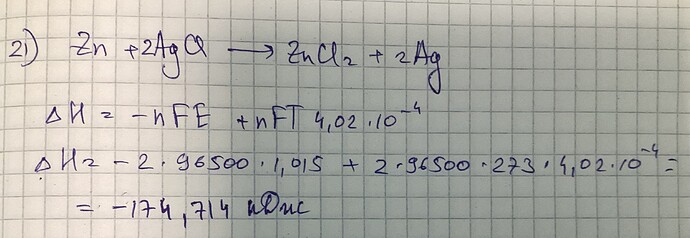 21) Zn + 2AgCl → ZnCl₂ + 2Ag
ΔH = -nFE + nFT 4,02·10⁻⁴
ΔH = -2·96500·1,015 + 2·96500·273·4,02·10⁻⁴ =
= -174,714 кДж